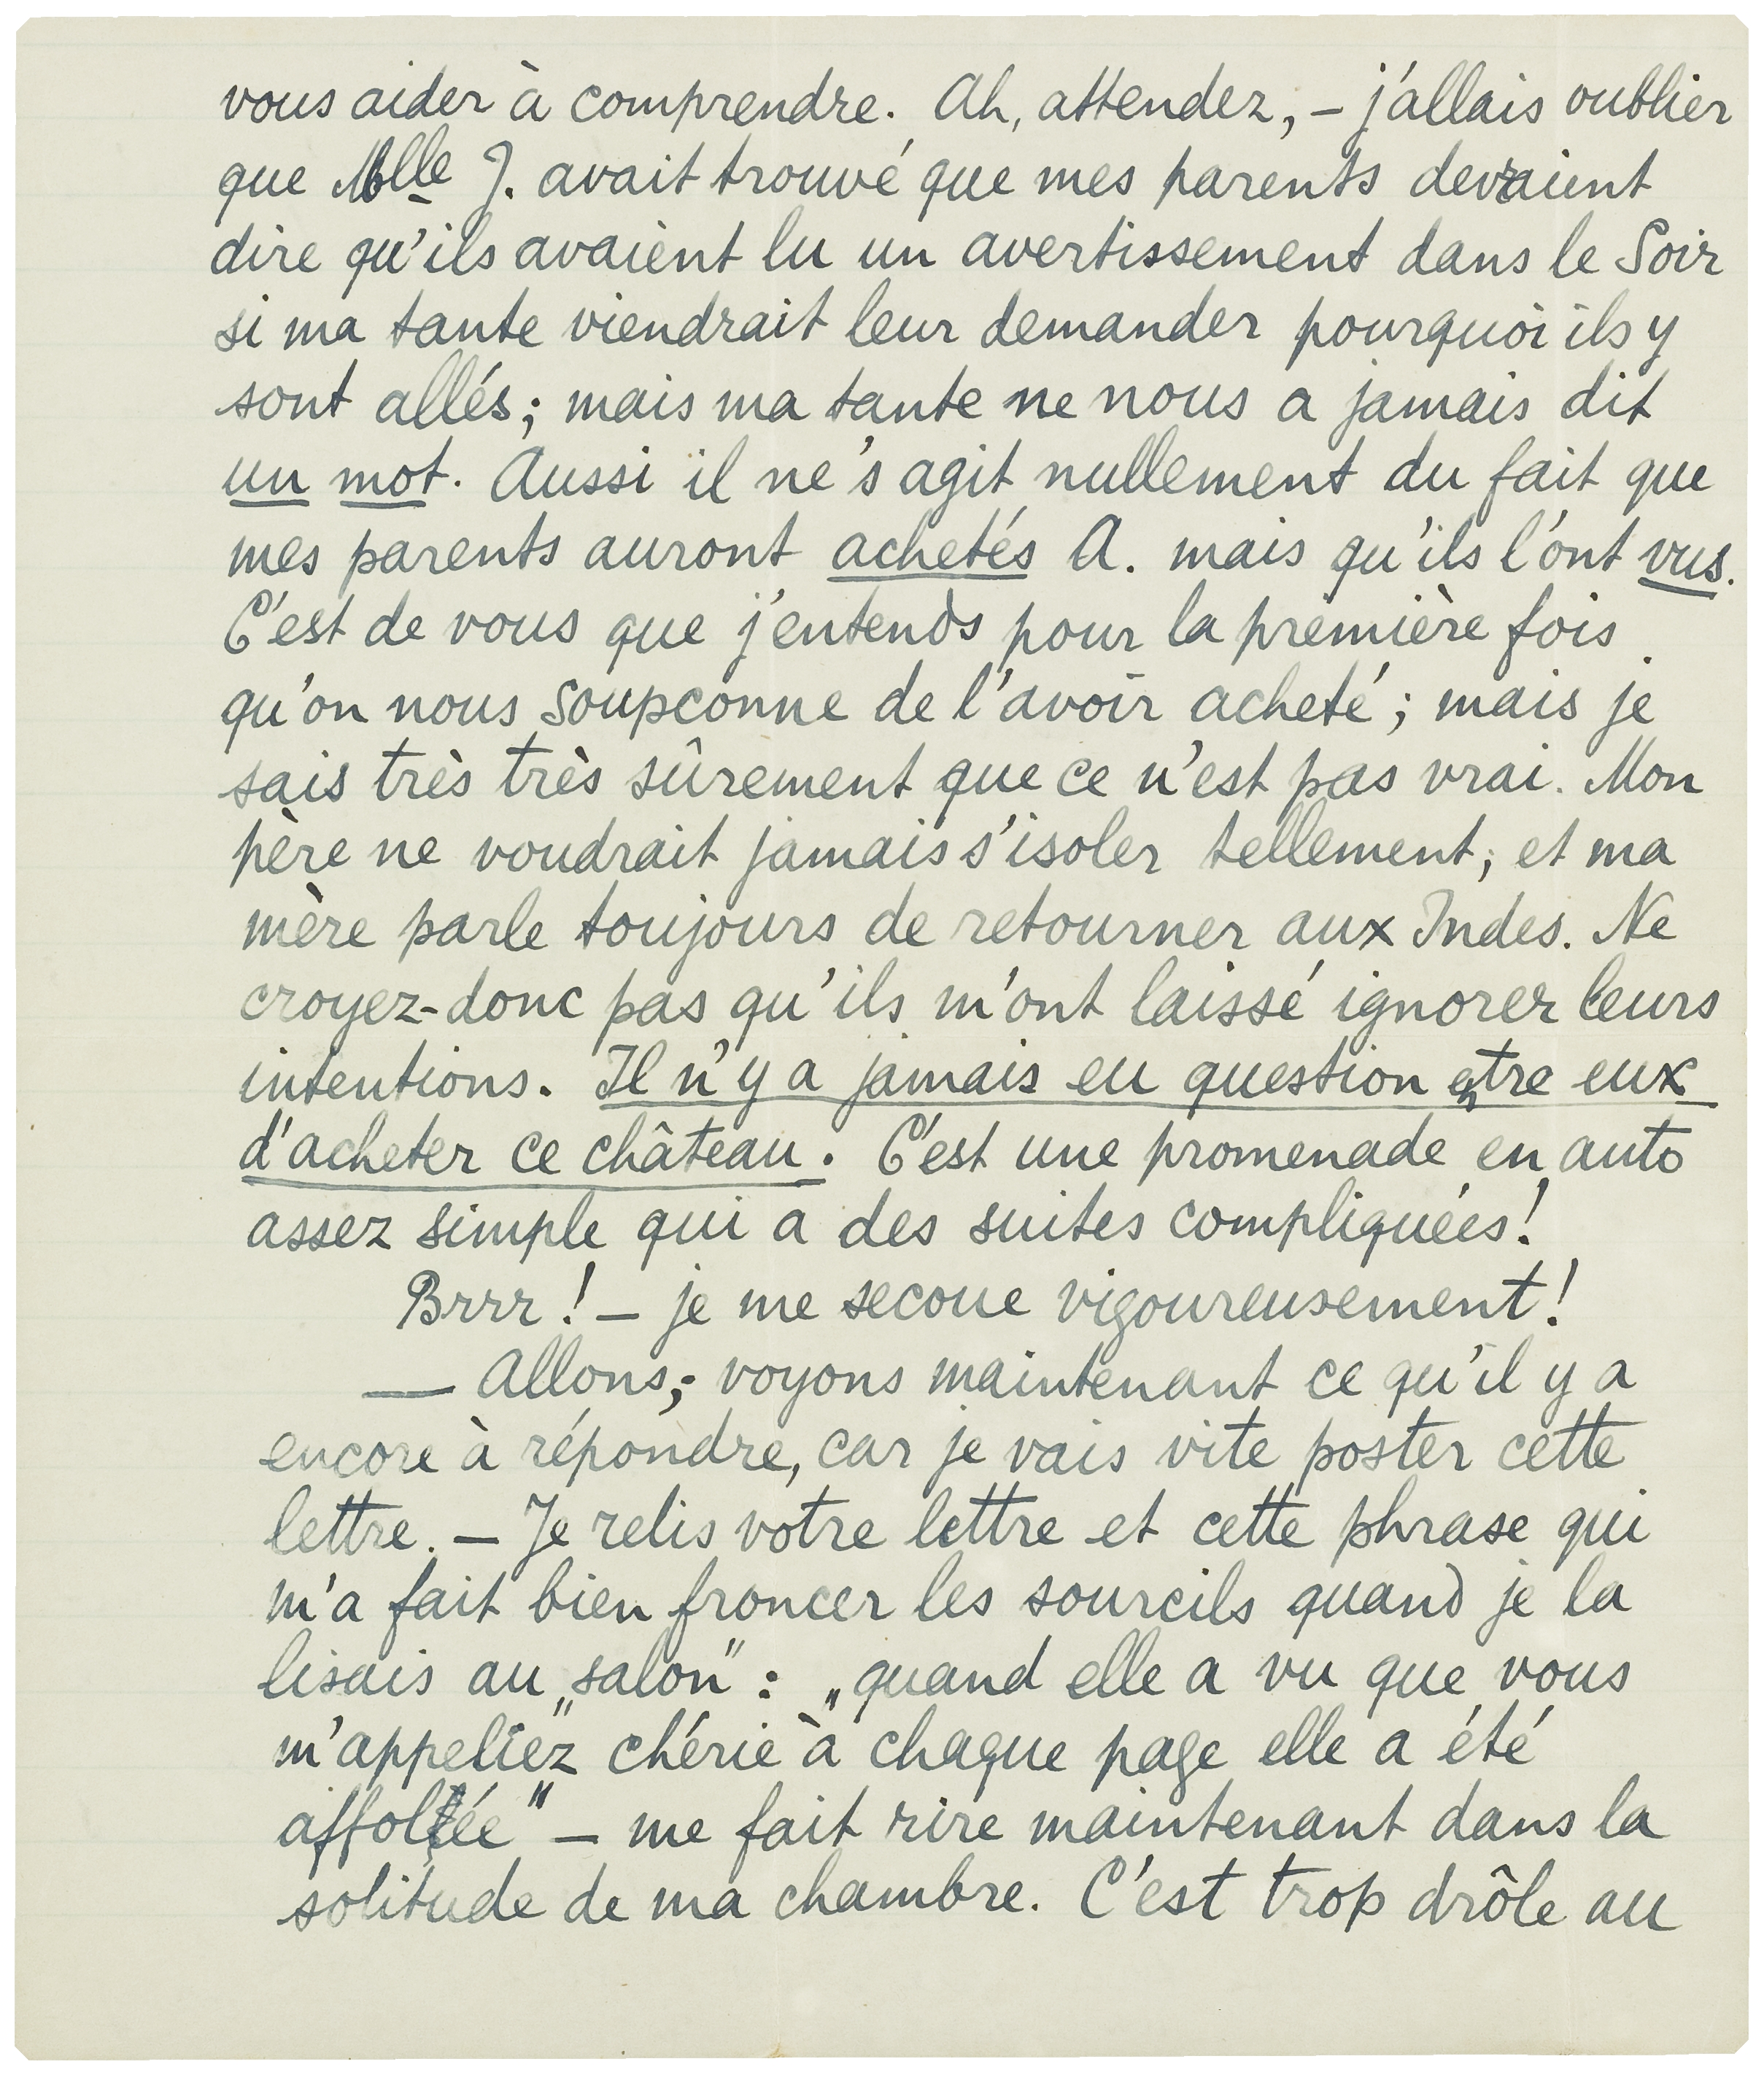 vous aider à comprendre. Ah, attendez, – j'allais oublier
que Mlle J. avait trouvé que mes parents devraient
dire qu'ils avaient lu un avertissement dans le Soir
si ma tante viendrait leur demander pourquoi ils y
sont allés; mais ma tante ne nous a jamais dit
un mot. Aussi il ne's agit nullement du fait que
mes parents auront achetés A. mais qu'ils l'ont vus.
C'est de vous que j'entends pour la première fois
qu'on nous soupconne de l'avoir acheté; mais je
sais très très sûrement que ce n'est pas vrai. Mon
père ne voudrait jamais s'isoler tellement, et ma
mère parle toujours de retourner aux Indes. Ne
croyez-donc pas qu'ils m'ont laissé ignorer leurs
intentions. Il n'y a jamais eu question entre eux
d'acheter ce château. C'est une promenade en auto
assez simple qui a des suites compliquées!
Brrr! – je me secoue vigoureusement!
— Allons, voyons maintenant ce qu'il y a
encore à répondre, car je vais vite poster cette
lettre. – Je relis votre lettre et cette phrase qui
m'a fait bien froncer les sourcils quand je la
lisais au „salon": „quand elle a vu que vous
m'appeliez „chérie" à chaque page elle a été
affolée" – me fait rire maintenant dans la
solitude de ma chambre. C'est trop drôle au